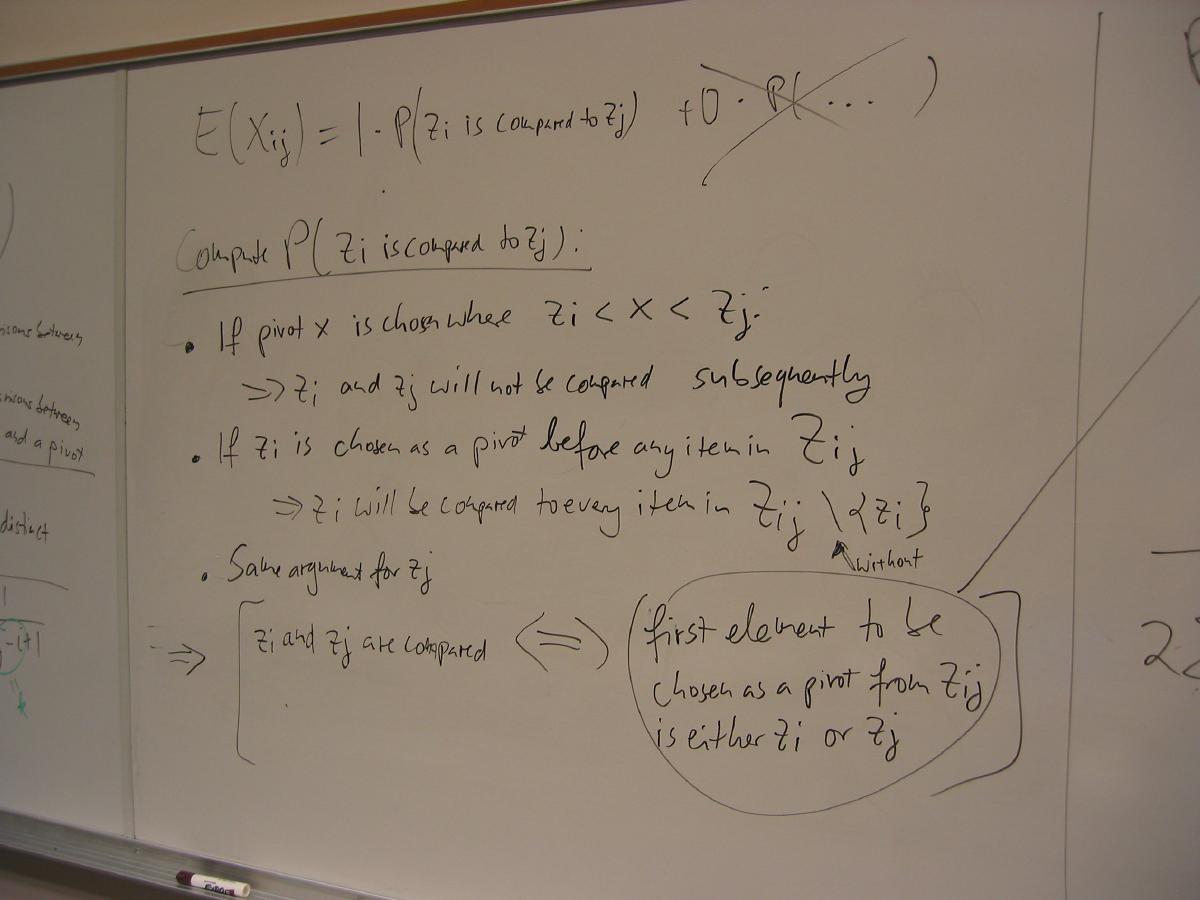 E(Xij) = 1 · P(zi is compared to zj) + 0 · P(... )
Compute P(zi is compared to zj):
• If pivot x is chosen where zi < x < zj:
=> zi and zj will not be compared subsequently
• If zi is chosen as a pivot before any item in Zij
=> zi will be compared to every item in Zij \ {zi}
without
• Same argument for zj
=> [zi and zj are compared <=> (first element to be
chosen as a pivot from Zij
is either zi or zj)]
between
between
and a pivot
distinct
-i+1
k
2